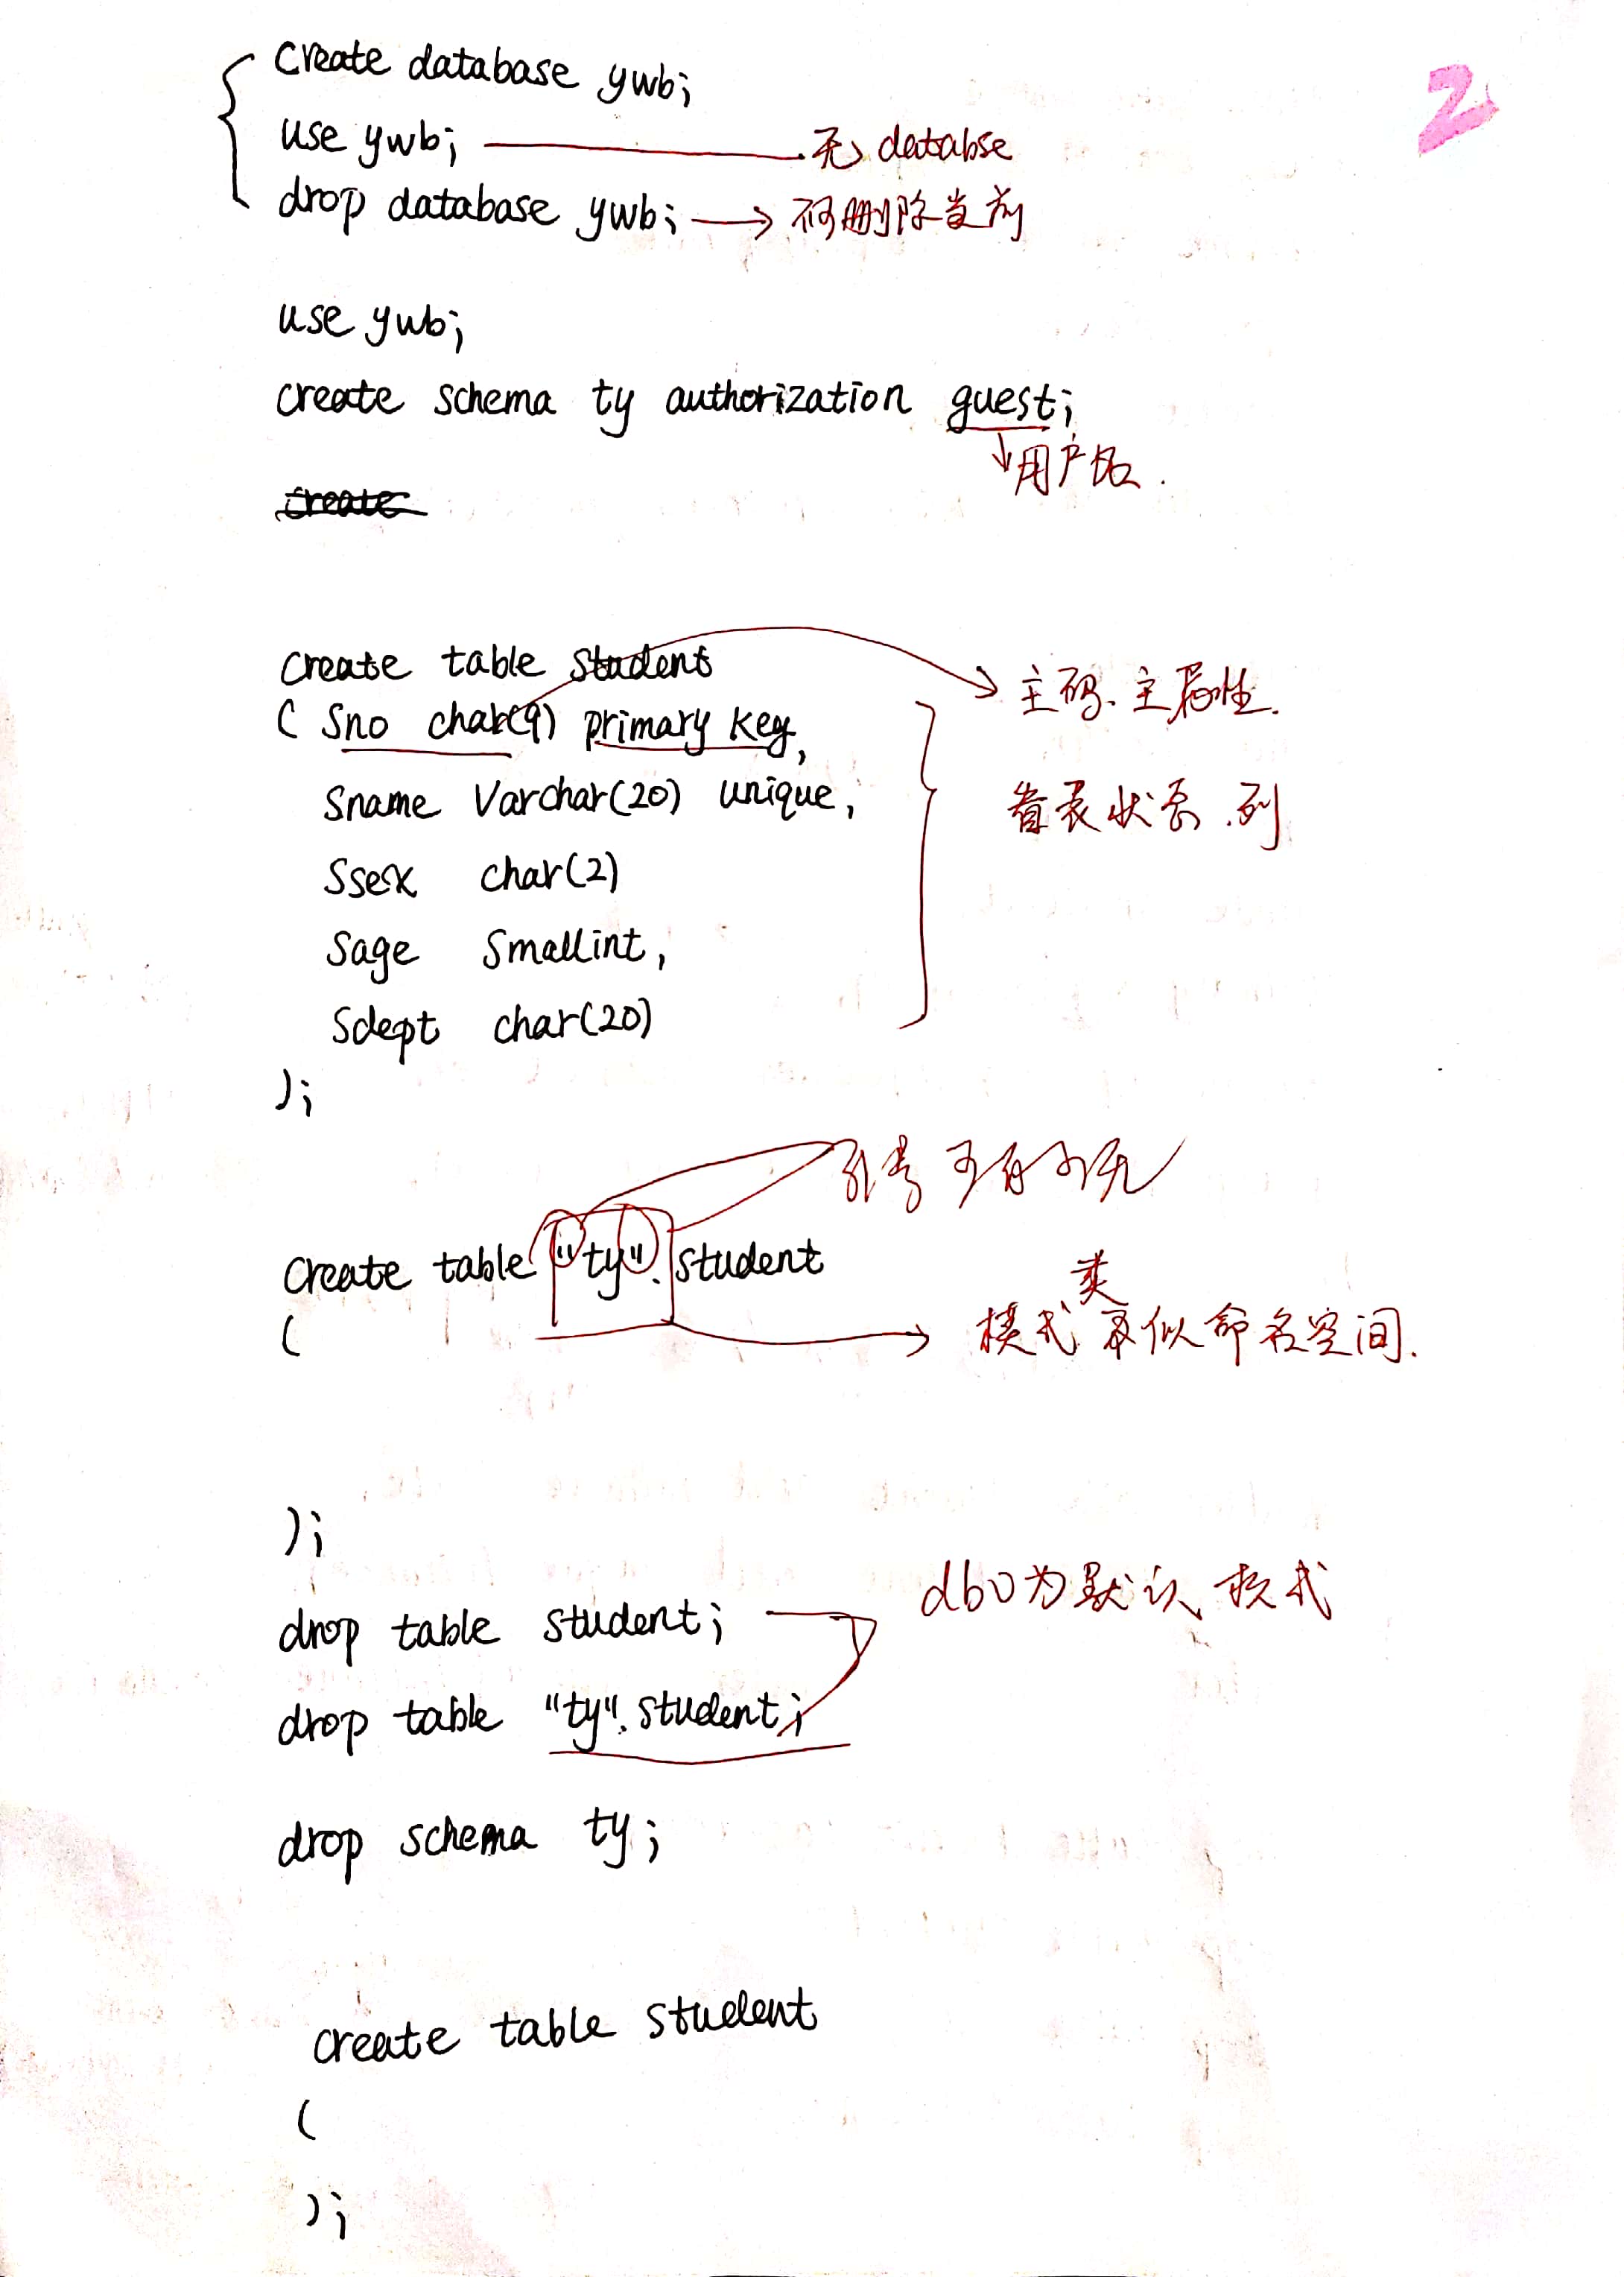 2
create database ywb;
use ywb; 无 databse
drop database ywb; 不可删除当前
use ywb;
create schema ty authorization guest;
用户名.
create
create table student
( Sno char(9) primary key, 主码、主属性.
Sname Varchar(20) unique, 看表状态.列
Ssex char(2)
Sage Smallint,
Sdept char(20)
);
引号可有可无
create table "ty".student
类
( 模式 似命名空间.
);
dbo为默认模式
drop table student;
drop table "ty".student;
drop schema ty;
create table student
(
);